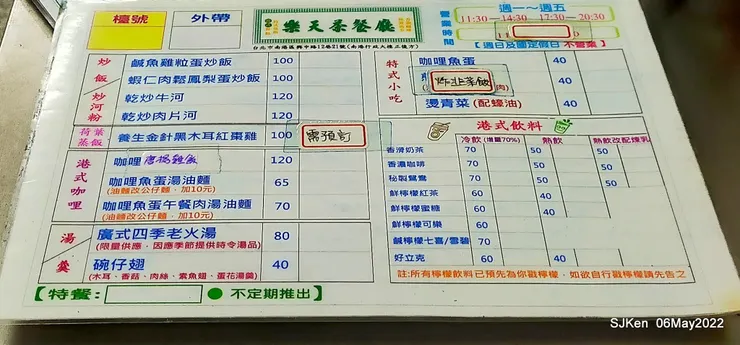 檯號
外帶
樂天茶餐廳
台北市南港區興中路12巷21號(南港行政大樓正後方)
營業時間
週一～週五
11:30-14:30 17:30-20:30
【週日及國定假日不營業】
炒飯/炒河粉
鹹魚雞粒蛋炒飯 100
蝦仁肉鬆鳳梨蛋炒飯 100
乾炒牛河 120
乾炒肉片河 120
荷葉蒸飯
養生金針黑木耳紅棗雞 100
需預訂
港式咖哩
咖哩 120
咖哩魚蛋湯油麵 65
(油麵改公仔麵，加10元)
咖哩魚蛋午餐肉湯油麵 70
(油麵改公仔麵，加10元)
湯羹
廣式四季老火湯 80
(限量供應，因應季節提供時令湯品)
碗仔翅 40
(木耳、香菇、肉絲、素魚翅、蛋花湯羹)
【特餐: 】
● 不定期推出
特式小吃
咖哩魚蛋 40
炸韭菜餃
肉) 40
燙青菜 (配蠔油) 40
港式飲料
冷飲 (增量70%) 熱飲 熱飲改配煉乳
香滑奶茶 70 50 50
香濃咖啡 70 50 50
秘製鴛鴦 70 50 50
鮮檸檬紅茶 60 40
鮮檸檬蜜糖 60 40
鮮檸檬可樂 60 40
鹹檸檬七喜/雪碧 70
好立克 60 40 40
註:所有檸檬飲料已預先為你戳檸檬，如欲自行戳檸檬請先告之
SJKen 06May2022